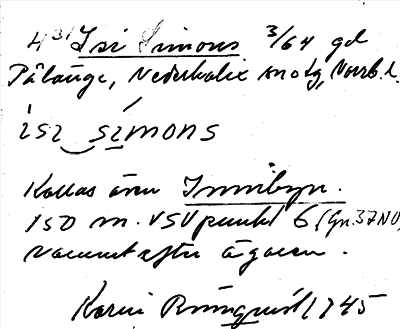 431 Isi Simons 3/64 gd
Pålänge, Nederkalix sn o tg, Norrb. l.
isi simons
Kallas även Innibyn.
150 m. VSV punkt 6 (Gn. 37 NO)
efter ägaren.
Karin 1945